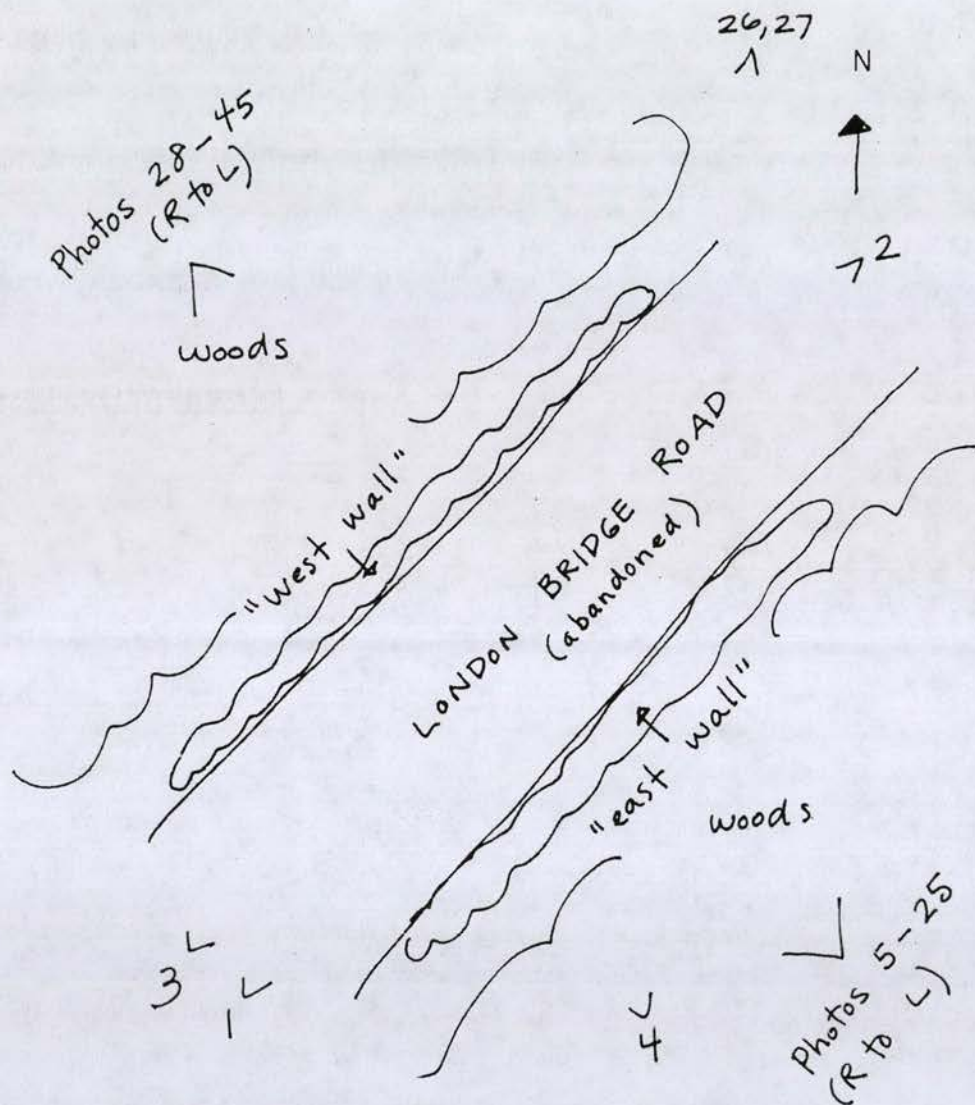 26, 27
N
2
Photos 28-45
(R to L)
woods
"west wall"
LONDON BRIDGE ROAD
(abandoned)
"east wall"
woods
3
1
4
Photos 5-25
(R to L)